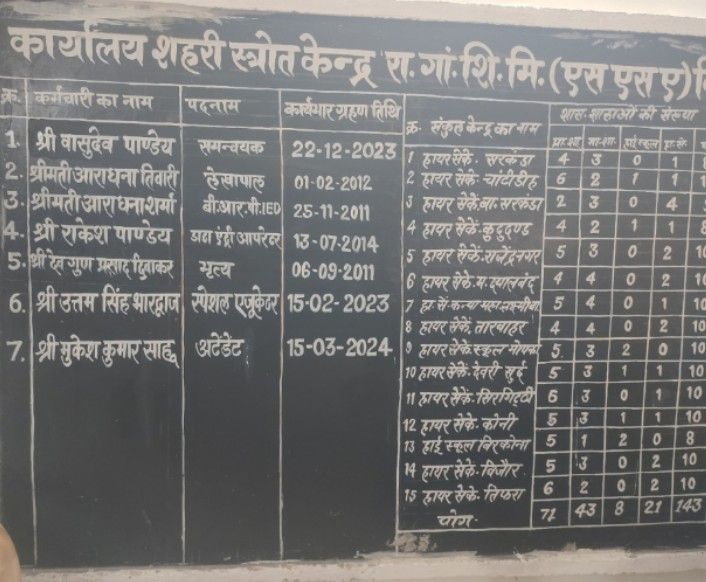 कार्यालय शहरी स्त्रोत केन्द्र रा. गां. शि. मि. (एस एस ए)
क्र. कर्मचारी का नाम पदनाम कार्यभार ग्रहण तिथि
1. श्री वासुदेव पाण्डेय समन्वयक 22-12-2023
2. श्रीमती आराधना तिवारी लेखापाल 01-02-2012
3. श्रीमती आराधना शर्मा बी.आर.पी.IED 25-11-2011
4. श्री राकेश पाण्डेय डाटा इंट्री आपरेटर 13-07-2014
5. श्री देव गुण प्रसाद दिवाकर भृत्य 06-09-2011
6. श्री उत्तम सिंह भारद्वाज स्पेशल एजूकेटर 15-02-2023
7. श्री मुकेश कुमार साहू अटेंडेंट 15-03-2024
शास. शालाओं की संख्या
क्र. संकुल केन्द्र का नाम प्रा.शा. मा.शा. हाई स्कूल
1 हायर सेके. सरकंडा 4 3 0 1 8
2 हायर सेके. चांटीडीह 6 2 1 1
3 हायर सेके. बा. सरकंडा 2 3 0 4
4 हायर सेके. कुदुदण्ड 4 2 1 1 8
5 हायर सेके. राजेन्द्रनगर 5 3 0 2 10
6 हायर सेके. म. दयालबंद 4 4 0 2 10
7 5 4 0 1 10
8 हायर सेके. तारबाहर 4 4 0 2 10
9 हायर सेके. स्कूल 5 3 2 0 10
10 हायर सेके. देवरी खुर्द 5 3 1 1 10
11 हायर सेके. सिरगिट्टी 6 3 0 1 10
12 हायर सेके. कोनी 5 3 1 1 10
13 हाई स्कूल बिरकोना 5 1 2 0 8
14 हायर सेके. बिजौर 5 3 0 2 10
15 हायर सेके. तिफरा 6 2 0 2 10
योग. 71 43 8 21 143